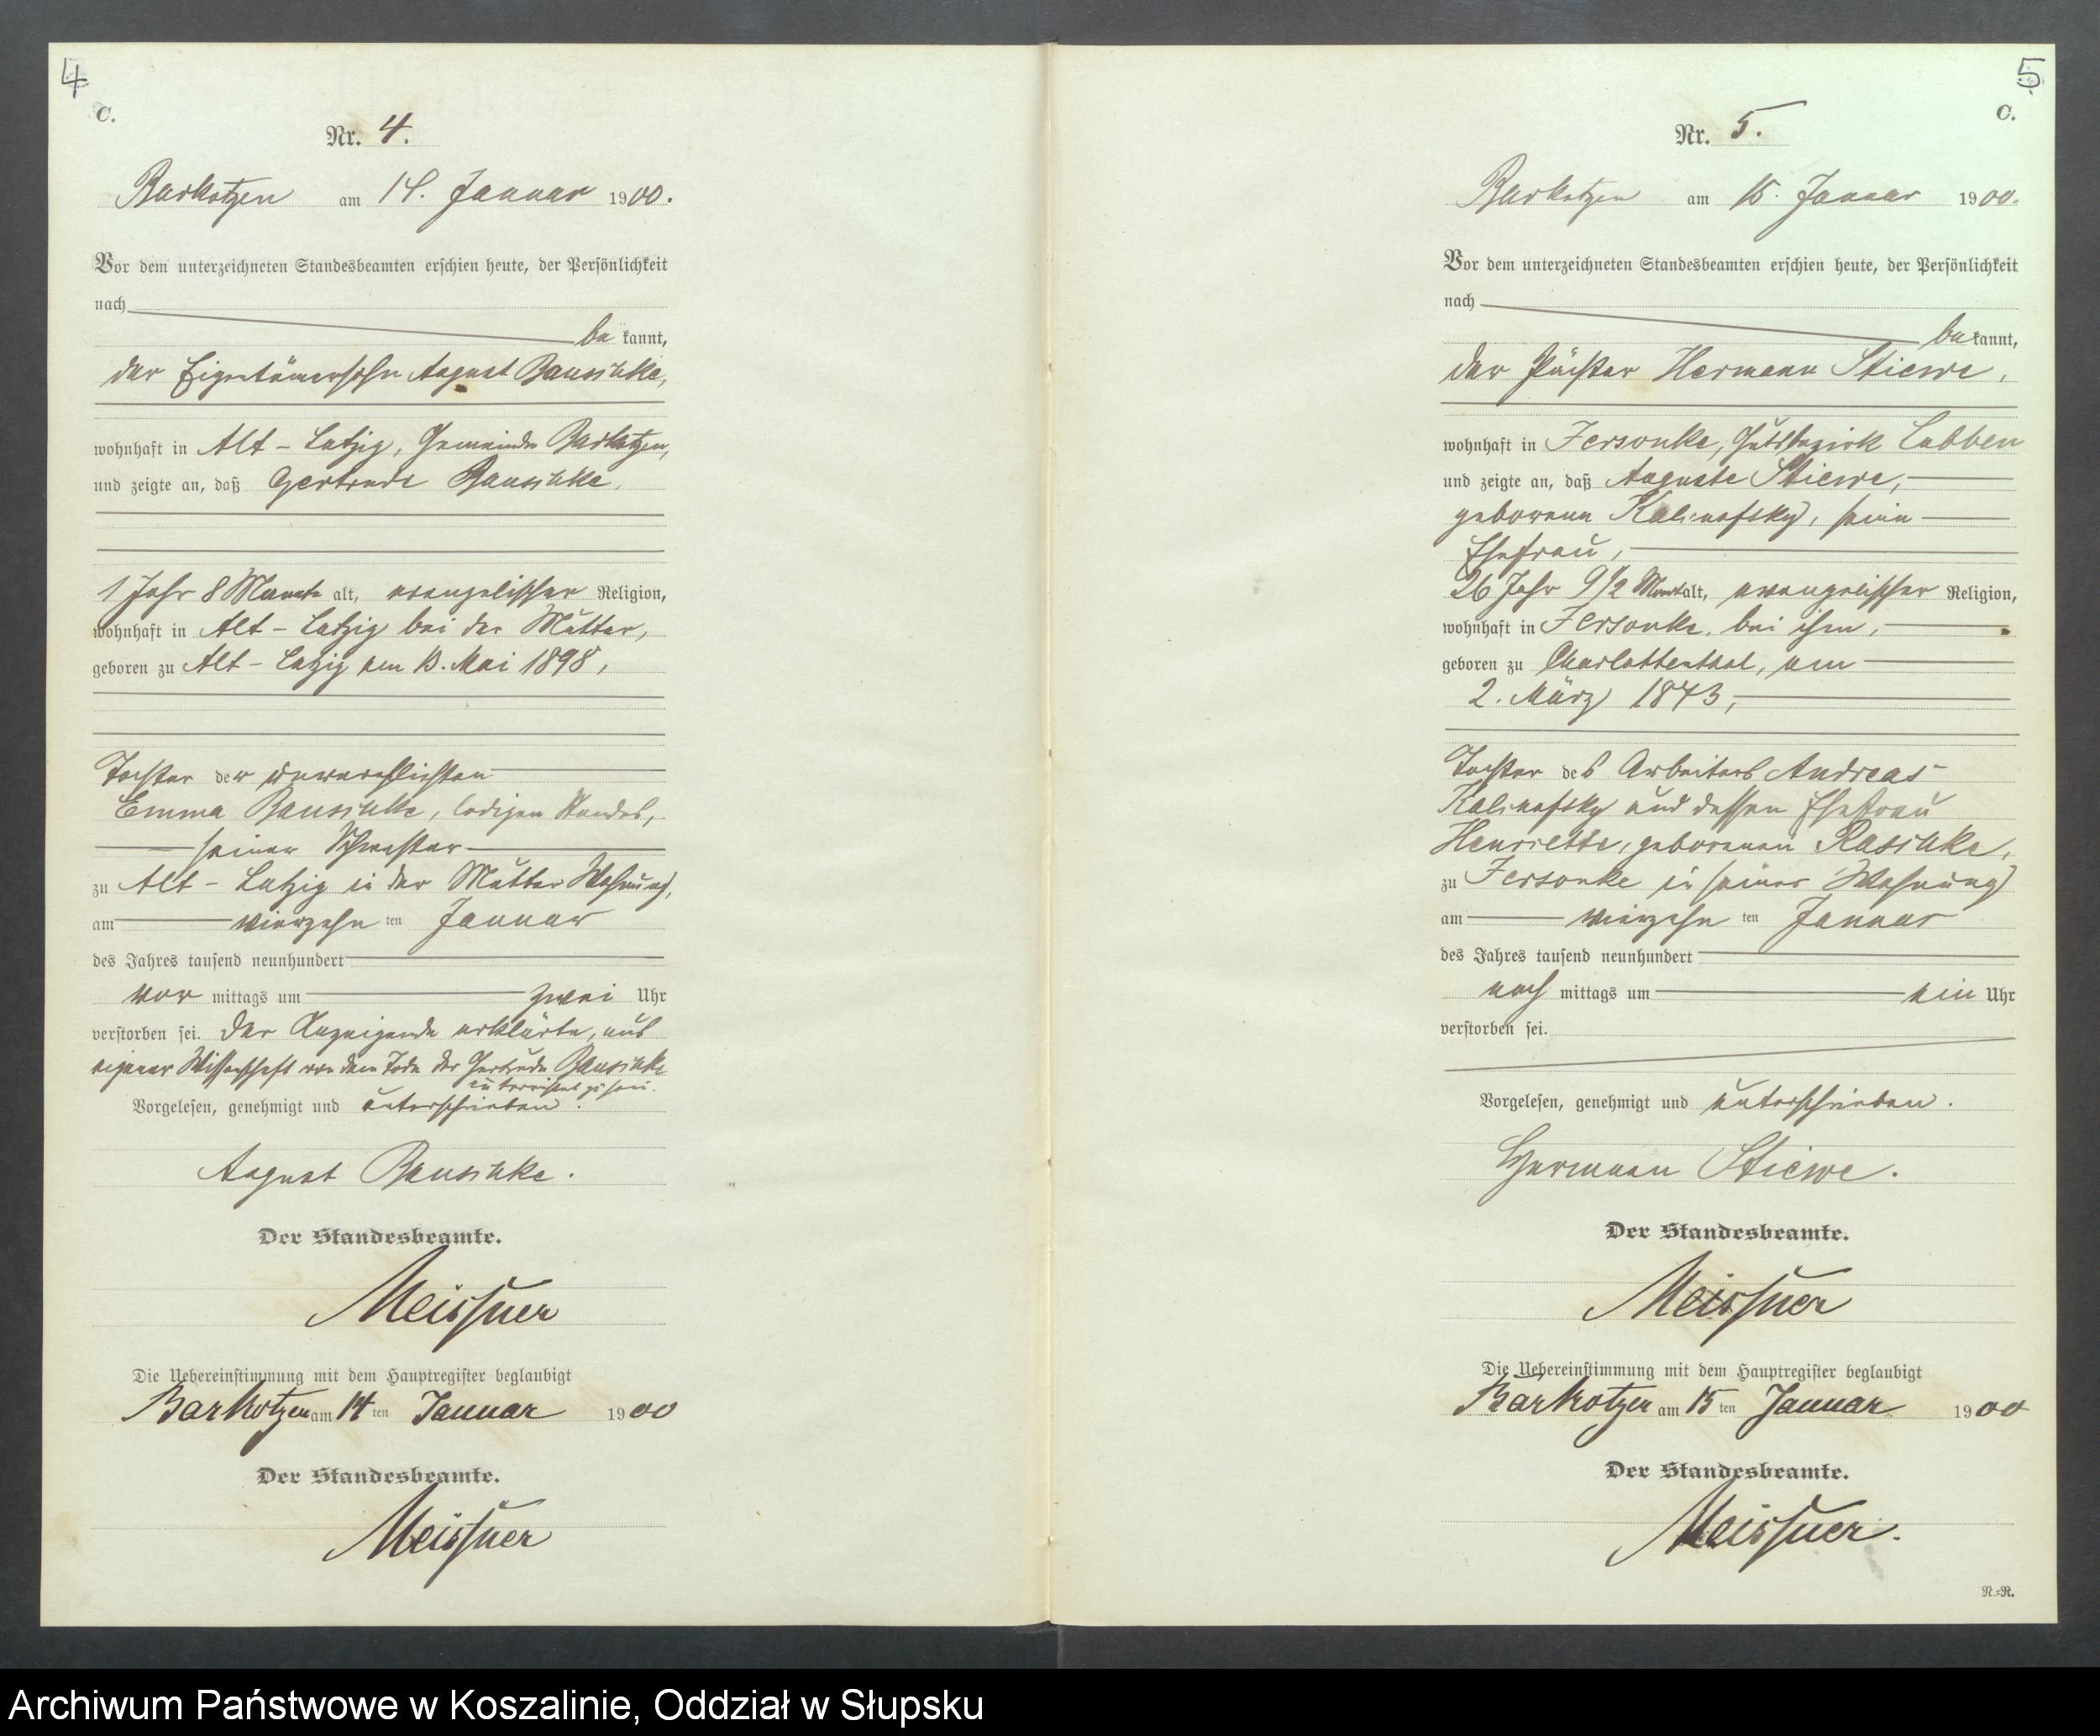 4
C.
Nr. 4.
Barkotzen am 14. Januar 1900.
Vor dem unterzeichneten Standesbeamten erschien heute, der Persönlichkeit
nach
be kannt,
der Eigentümersohn August Bauschke,
wohnhaft in Alt-Latzig, Gemeinde Barkotzen,
und zeigte an, daß Gertrude Bauschke,
1 Jahr 8 Monate alt, evangelischer Religion,
wohnhaft in Alt-Latzig bei der Mutter,
geboren zu Alt-Latzig am 13. Mai 1898,
Tochter der unverehelichten
Emma Bauschke, ledigen Standes,
seiner Schwester
zu Alt-Latzig in der Mutter Wohnung,
am vierzehn ten Januar
des Jahres tausend neunhundert
vor mittags um zwei Uhr
verstorben sei. Der Anzeigende erklärte, aus
eigener Wissenschaft von dem Tode der Gertrude Bauschke
unterrichtet zu sein.
Vorgelesen, genehmigt und unterschrieben.
August Bauschke.
Der Standesbeamte.
Meissner
Die Uebereinstimmung mit dem Hauptregister beglaubigt
Barkotzen am 14 ten Januar 1900
Der Standesbeamte.
Meissner
5
C.
Nr. 5.
Barkotzen am 15. Januar 1900.
Vor dem unterzeichneten Standesbeamten erschien heute, der Persönlichkeit
nach
be kannt,
der Pächter Hermann Stiewe,
wohnhaft in Jersonke, Gutsbezirk Labben
und zeigte an, daß Auguste Stiewe,
geborene Kalinofsky, seine
Ehefrau,
26 Jahr 9 1/2 Monat alt, evangelischer Religion,
wohnhaft in Jersonke, bei ihm,
geboren zu Charlottenthal, am
2. März 1873,
Tochter des Arbeiters Andreas
Kalinofsky und dessen Ehefrau
Henriette, geborenen Raschke,
zu Jersonke in seiner Wohnung
am vierzehn ten Januar
des Jahres tausend neunhundert
nach mittags um ein Uhr
verstorben sei.
Vorgelesen, genehmigt und unterschrieben.
Hermann Stiewe.
Der Standesbeamte.
Meissner
Die Uebereinstimmung mit dem Hauptregister beglaubigt
Barkotzen am 15 ten Januar 1900
Der Standesbeamte.
Meissner.
N.=R.
Archiwum Państwowe w Koszalinie, Oddział w Słupsku